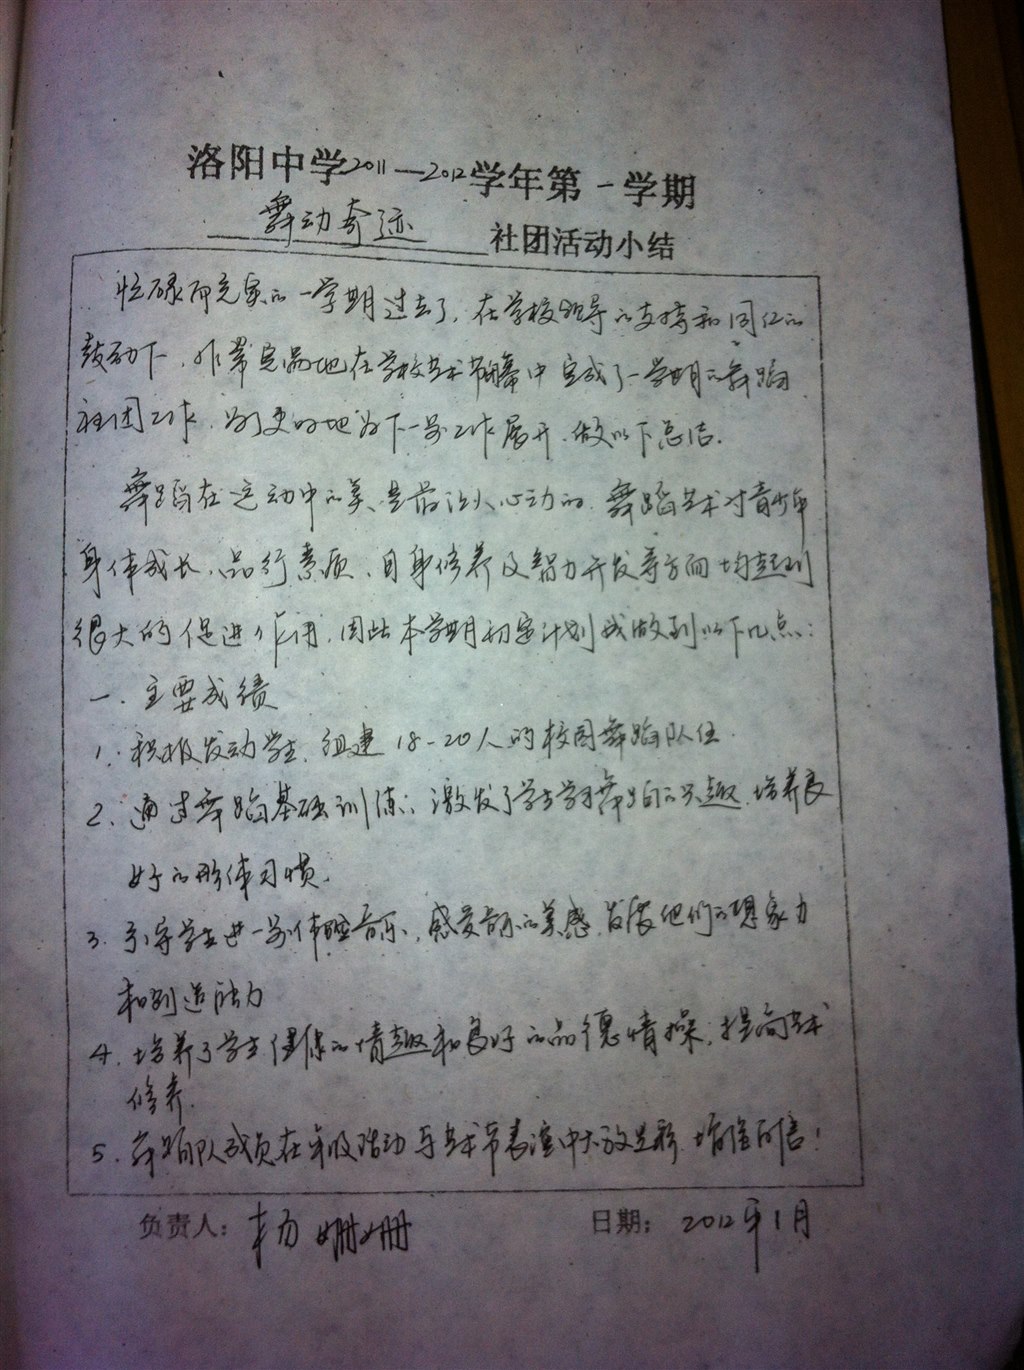 洛阳中学2011—2012学年第一学期
舞动奇迹 社团活动小结
忙碌而充实的一学期过去了，在学校领导的支持和同仁的
鼓动下，非常完满地在学校艺术节闭幕中完成了一学期的舞蹈
社团工作，为了更好地为下一步工作展开，做以下总结.
舞蹈在运动中的美、是最让人心动的，舞蹈艺术对青少年
身体成长、品行素质、自身修养及智力开发等方面均起到
很大的促进作用，因此本学期初定计划或做到以下几点：
一、主要成绩
1、积极发动学生，组建18-20人的校园舞蹈队伍
2、通过舞蹈基础训练；激发了学生学习舞蹈的兴趣，培养良
好的形体习惯.
3、引导学生进一步体验音乐，感受音乐的美感，发展他们的想象力
和创造能力
4、培养了学生健康的情趣和良好的品德情操，提高艺术
修养.
5、舞蹈队成员在年级活动与艺术节表演中大放光彩，增强自信！
负责人：杨姗姗 日期：2012年1月